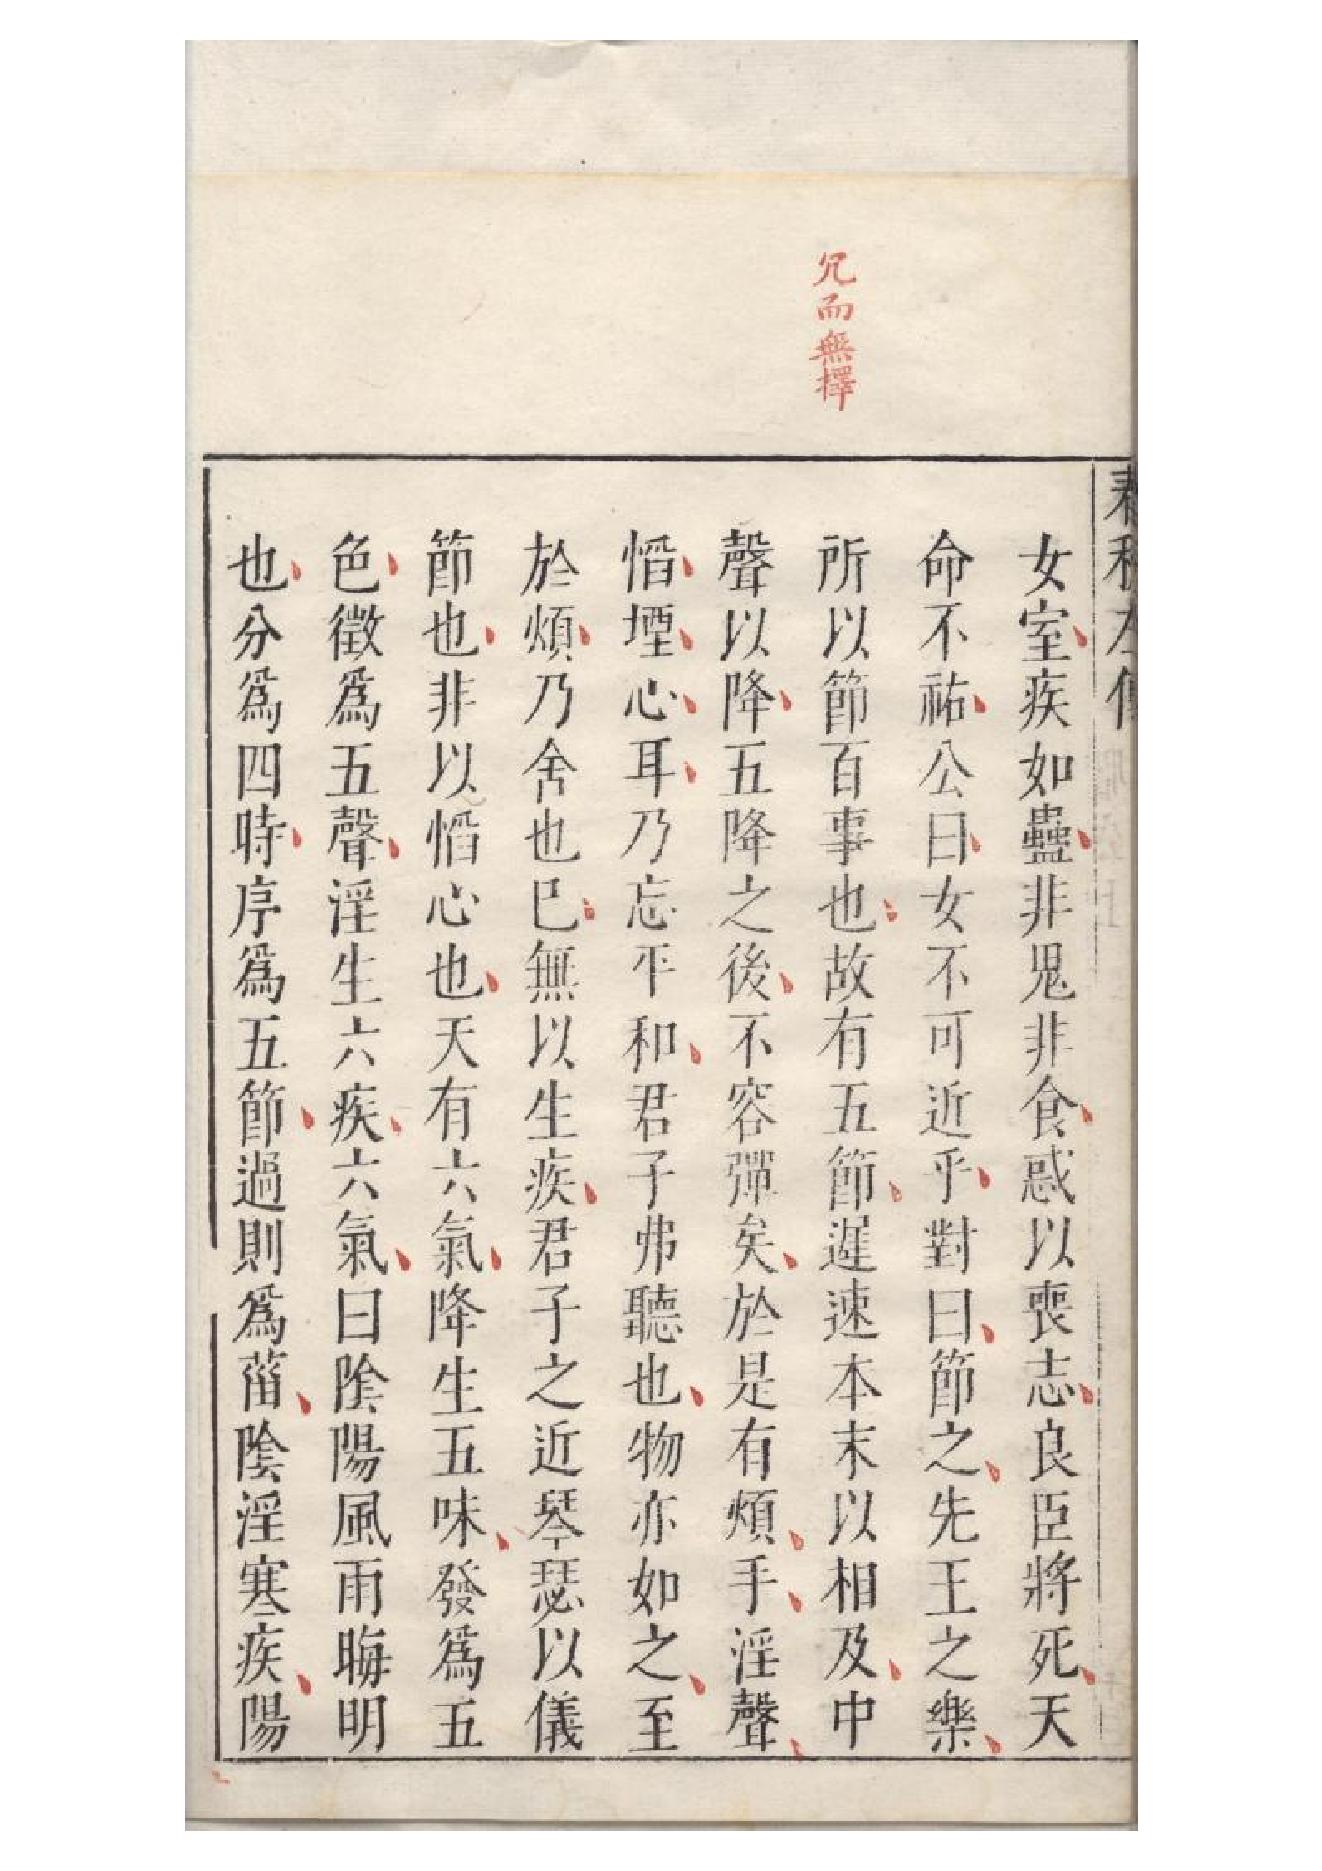 春秋左傳
女室疾如蠱非鬼非食惑以喪志良臣將死天
命不祐公曰女不可近乎對曰節之先王之樂
所以節百事也故有五節遲速本末以相及中
聲以降五降之後不容彈矣於是有煩手淫聲
慆堙心耳乃忘平和君子弗聽也物亦如之至
於煩乃舍也巳無以生疾君子之近琴瑟以儀
節也非以慆心也天有六氣降生五味發爲五
色徵爲五聲淫生六疾六氣曰陰陽風雨晦明
也分爲四時序爲五節過則爲菑陰淫寒疾陽
而無擇